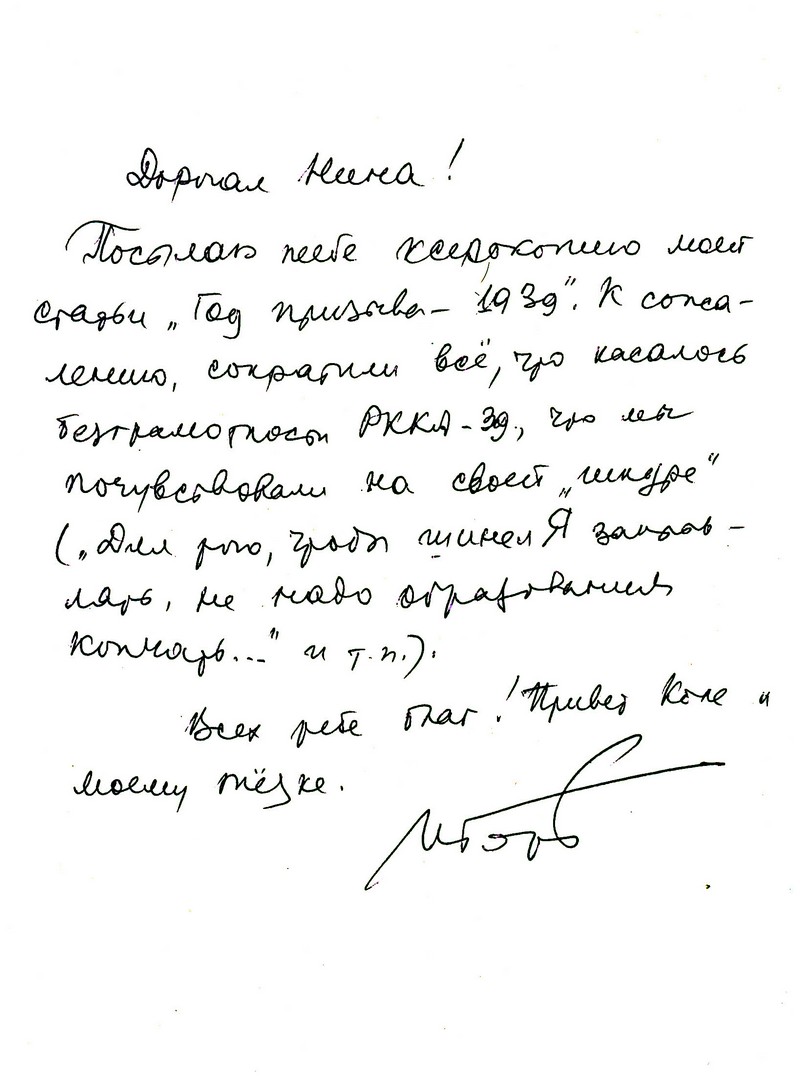 Дорогая Нина!
Посылаю тебе ксерокопию моей
статьи „Год призыва – 1939". К сожа-
лению, сократили всё, что касалось
безграмотности РККА-39, что мы
почувствовали на своей „шкуре"
(„Для того, чтобы шинелЯ заправ-
лять, не надо образованиев
кончать..." и т.п.).
Всех тебе благ! Привет Коле и
моему тёзке.
Игорь